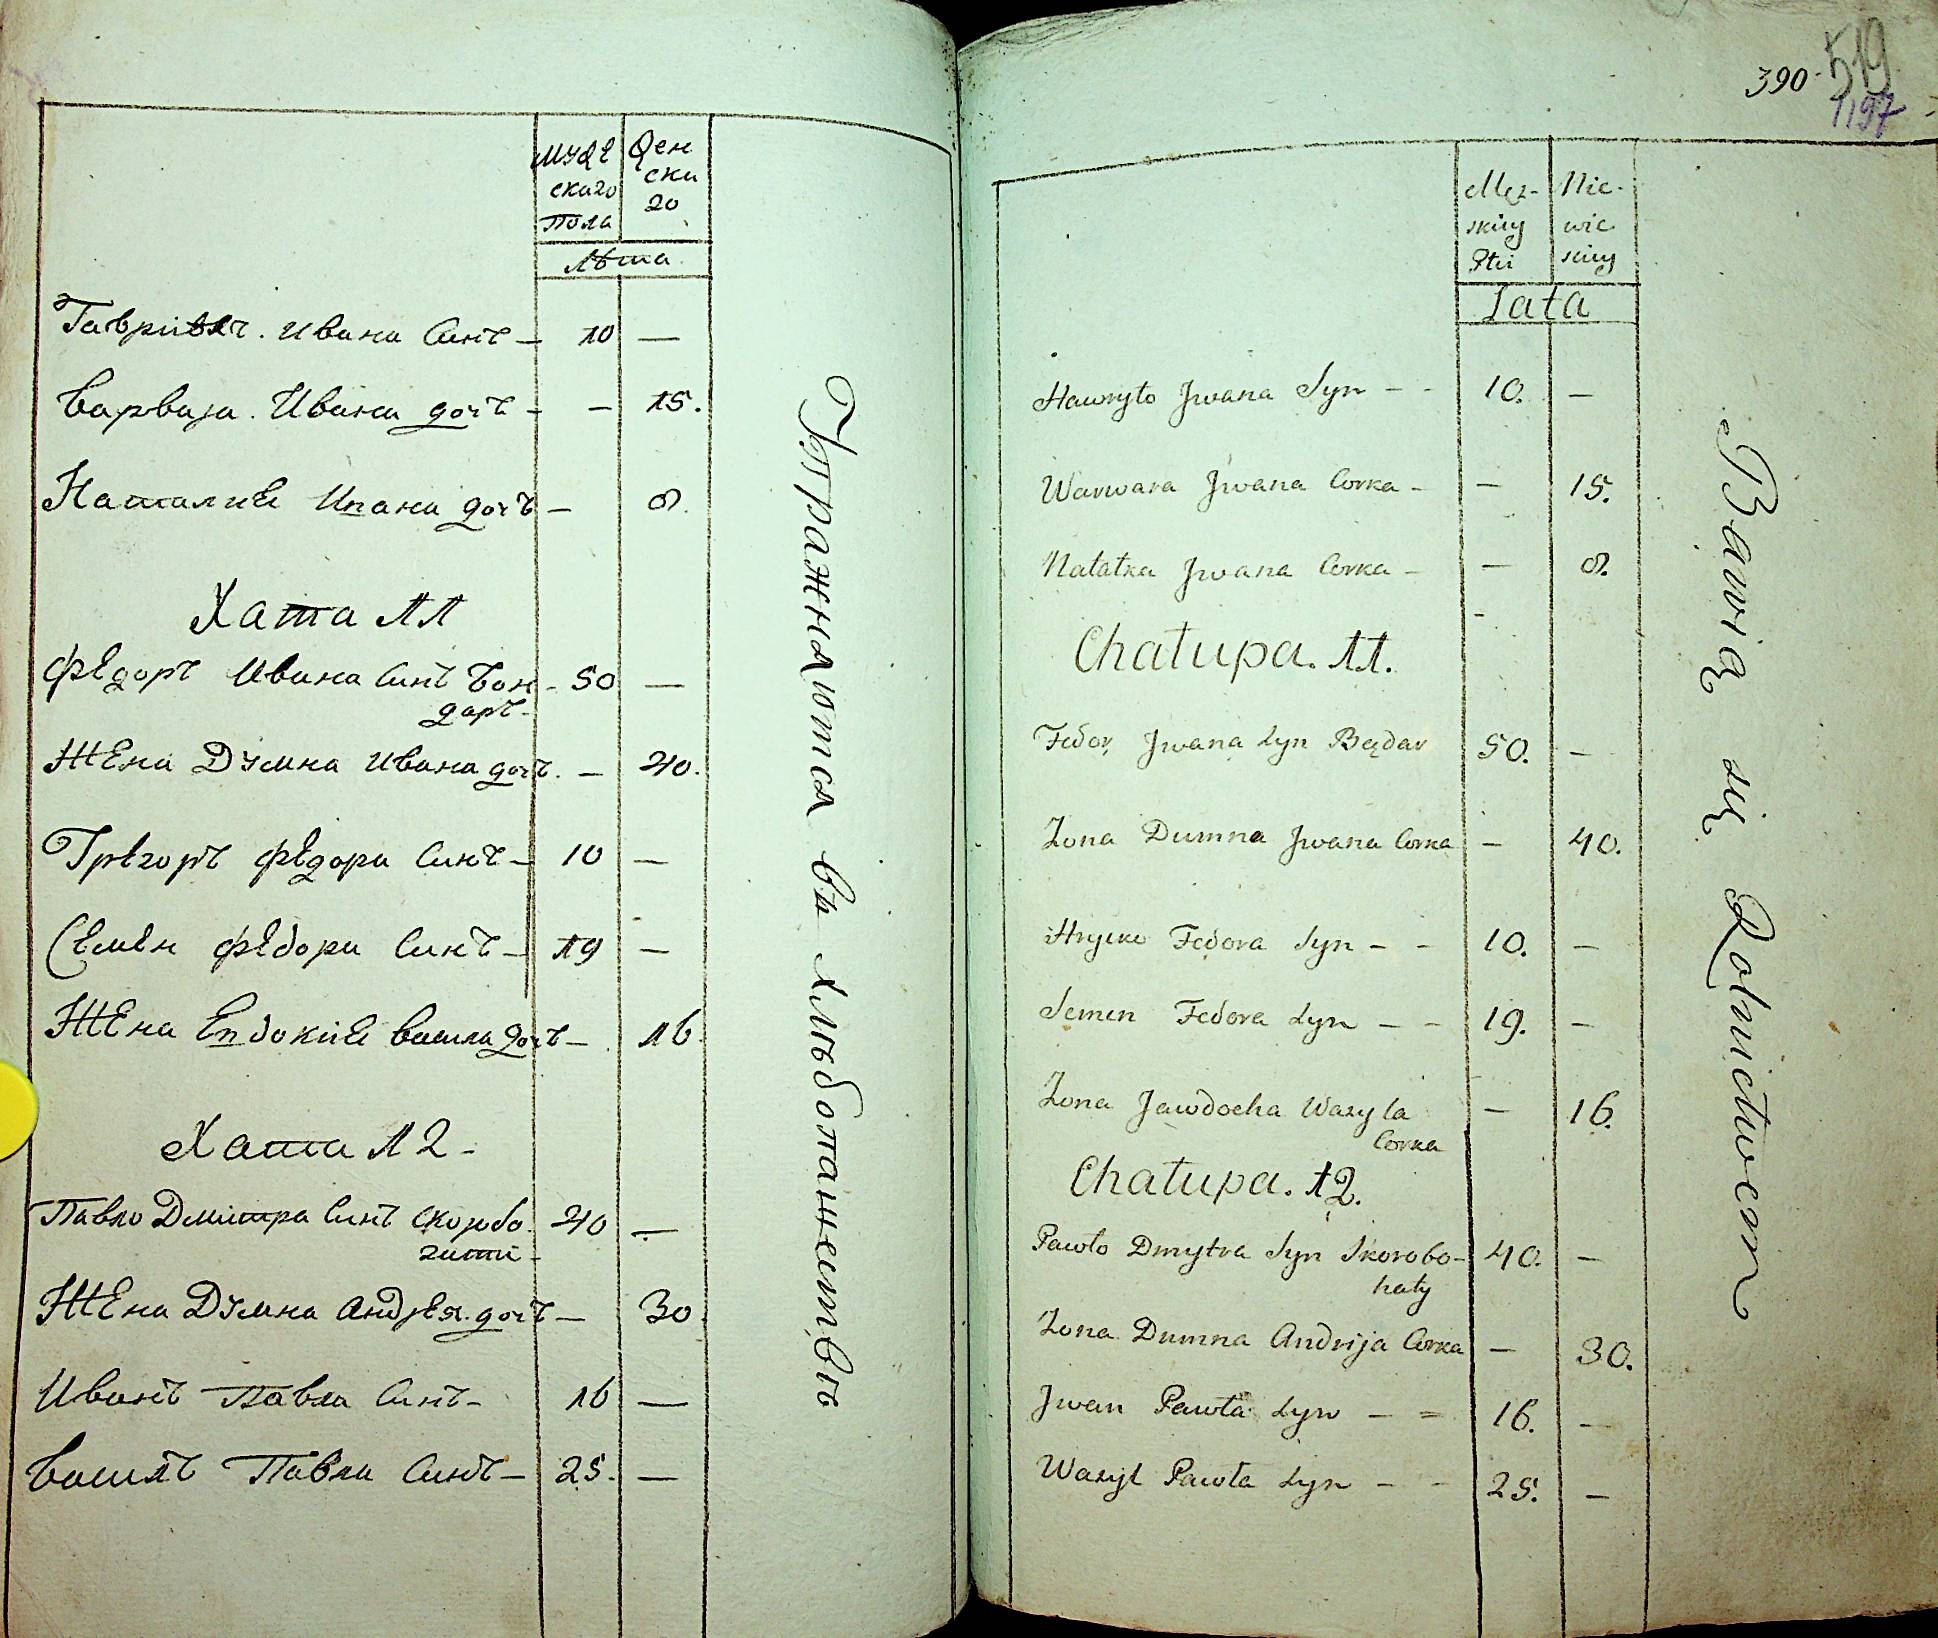 муже
скаго
Пола
Жен
ска
го
Лѣта
Гавриилъ. Ивана Синъ - 10 -
Варвара. Ивана дочъ - - 15.
Наталиѣ Ивана дочъ - 8.
Хата 11
Федоръ Ивана Синъ Бон- 50 -
даръ-
Жена Думна Ивана дочъ. - 40.
Грегоръ Федора Синъ - 10 -
Семен Федора Синъ - 19 -
Жена Евдокиѣ Васила дочъ - 16.
Хата 12 -
Павло Дмитра Синъ Скоробо- 40 -
гати -
Жена Думна Андрея. дочъ - 30.
Иванъ Павла Синъ - 16 -
Василъ Павла Синъ - 25. -
Упражняются въ хлѣбопашествѣ
390. 519
1197
Męz-
skiey
Płci
Nie-
wie
skiey
Lata
Hawryło Jwana Syn - - 10. -
Warwara Jwana Corka - - 15.
Natałka Jwana Corka - - 8.
Chałupa. 11.
Fedor Jwana Syn Będar 50. -
Zona Dumna Jwana Corka - 40.
Hryćko Fedora Syn - - 10. -
Semen Fedora Syn - - 19. -
Zona Jawdocha Wasyla - 16.
Corka
Chałupa. 12.
Pawło Dmytra Syn Skorobo- 40. -
haty
Zona Dumna Andrija Corka - 30.
Jwan Pawła Syn - = 16. -
Wasyl Pawła Syn - - 25. -
Bawią się Rolnictwem